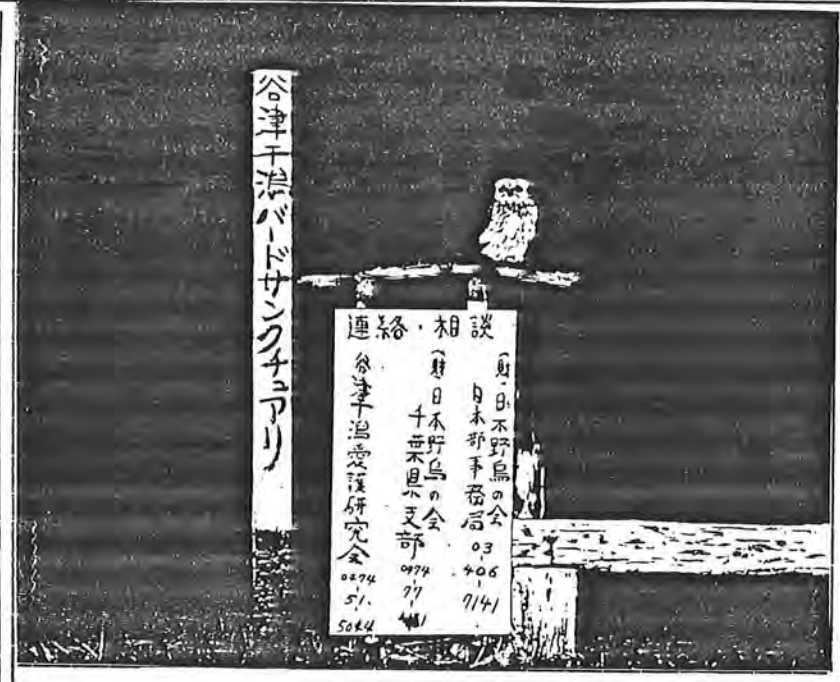 谷津干潟バードサンクチュアリ
連絡・相談
(財)日本野鳥の会
日本部事務局
03-406-7141
(財)日本野鳥の会
千葉県支部
谷津干潟愛護研究会
0474-51-5044